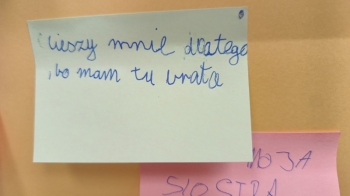 cieszy mnie dlatego
, bo mam tu brata
MOJA
SIOSTRA